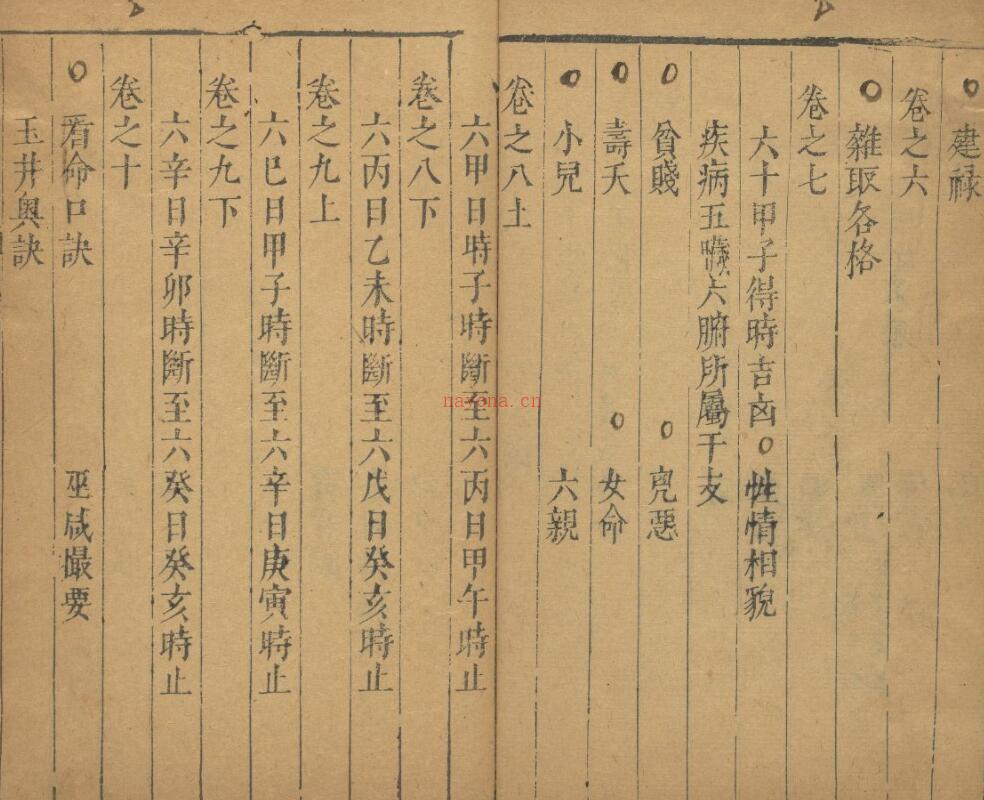 建祿
卷之六
〇雜取各格
卷之七
六十甲子得時吉凶〇性情相貌
疾病五臟六腑所屬干支
〇貧賤 〇兇惡
〇壽夭 〇女命
〇小兒 六親
卷之八土
六甲日時子時斷至六丙日甲午時止
卷之八下
六丙日乙未時斷至六戊日癸亥時止
卷之九上
六巳日甲子時斷至六辛日庚寅時止
卷之九下
六辛日辛卯時斷至六癸日癸亥時止
卷之十
〇看命口訣 巫咸撮要
玉井奧訣
nayona.cn